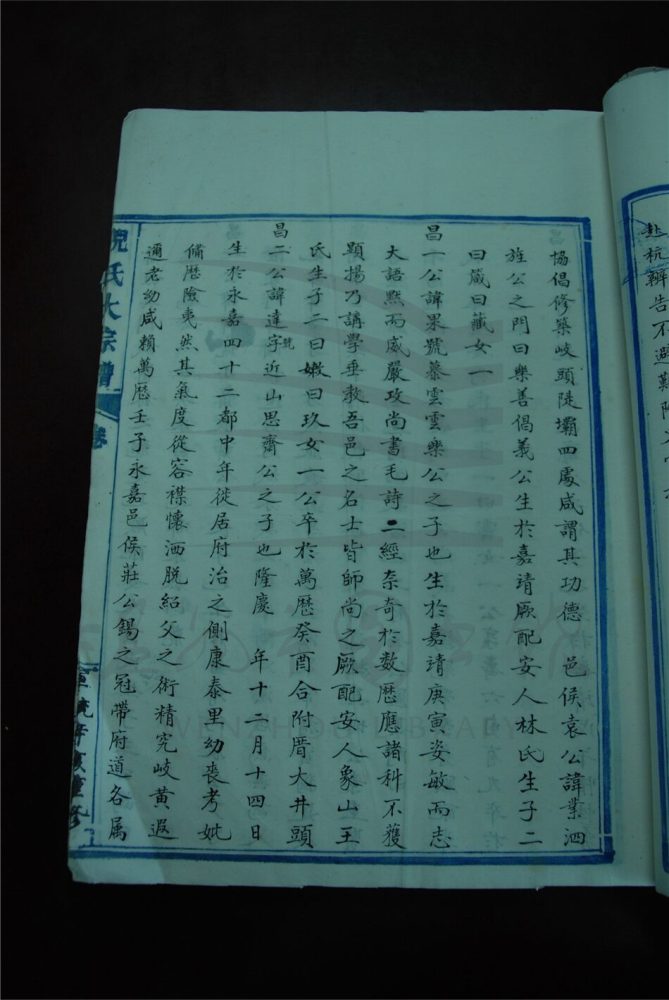 協倡修築岐頭陡壩四處咸謂其功德　邑侯袁公諱業泗
旌公之門曰樂善倡義公生於嘉靖厥配安人林氏生子二
曰箴曰藏女一
昌一公諱果號慕雲雲樂公之子也生於嘉靖庚寅姿敏而志
大語黙而威嚴攻尚書毛詩二經奈奇於数歷應諸科不獲
顯揚乃講學垂教吾邑之名士皆師尚之厥配安人象山王
氏生子二曰嫩曰玖女一公卒於萬歷癸酉合附厝大井頭
昌二公諱達字號近山思齋公之子也隆慶　年十二月十四日
生於永嘉四十二都中年徙居府治之側康泰里幼喪考妣
備歷險夷然其氣度從容襟懷洒脱紹父之術精究岐黃遐
邇老幼咸賴萬歷壬子永嘉邑侯莊公錫之冠帶府道各属
倪氏大宗譜
卷
重修
赴杭辨告不避難險